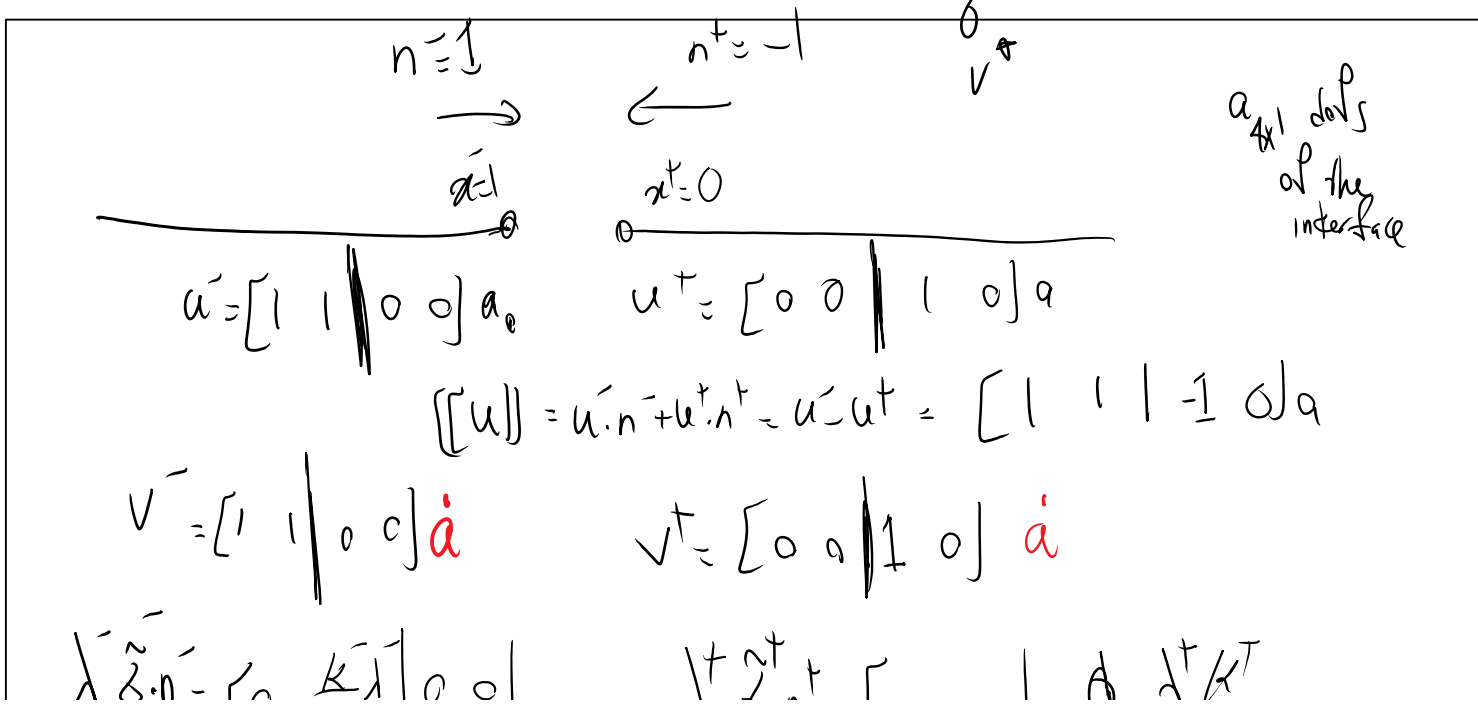 n⁻ = 1
n⁺ = -1
x⁻ = 1
x⁺ = 0
a₄ₓ₁ dofs
of the
interface
u⁻ = [1 1 | 0 0] a
u⁺ = [0 0 | 1 0] a
[[u]] = u⁻.n⁻ + u⁺.n⁺ = u⁻ - u⁺ = [1 1 | -1 0] a
v⁻ = [1 1 | 0 0] ȧ
v⁺ = [0 0 | 1 0] ȧ